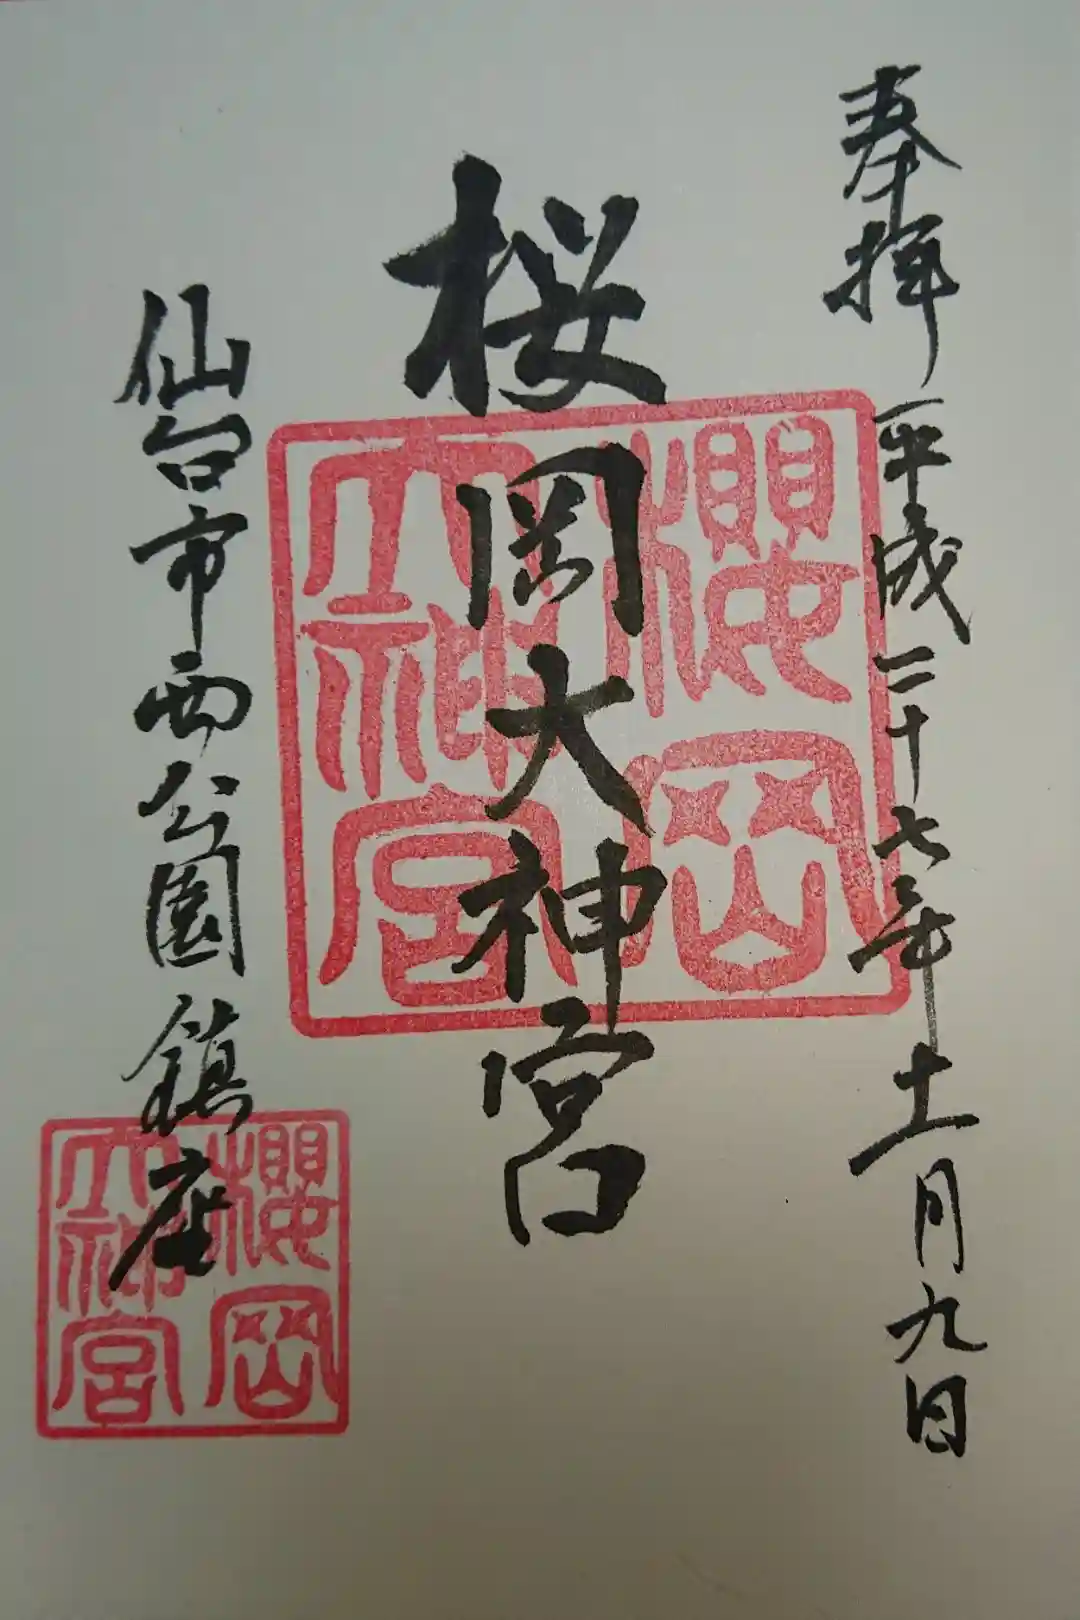 奉拝 平成二十七年十一月九日
桜岡大神宮
櫻岡
大神宮
仙台市西公園鎮座
櫻岡
大神宮